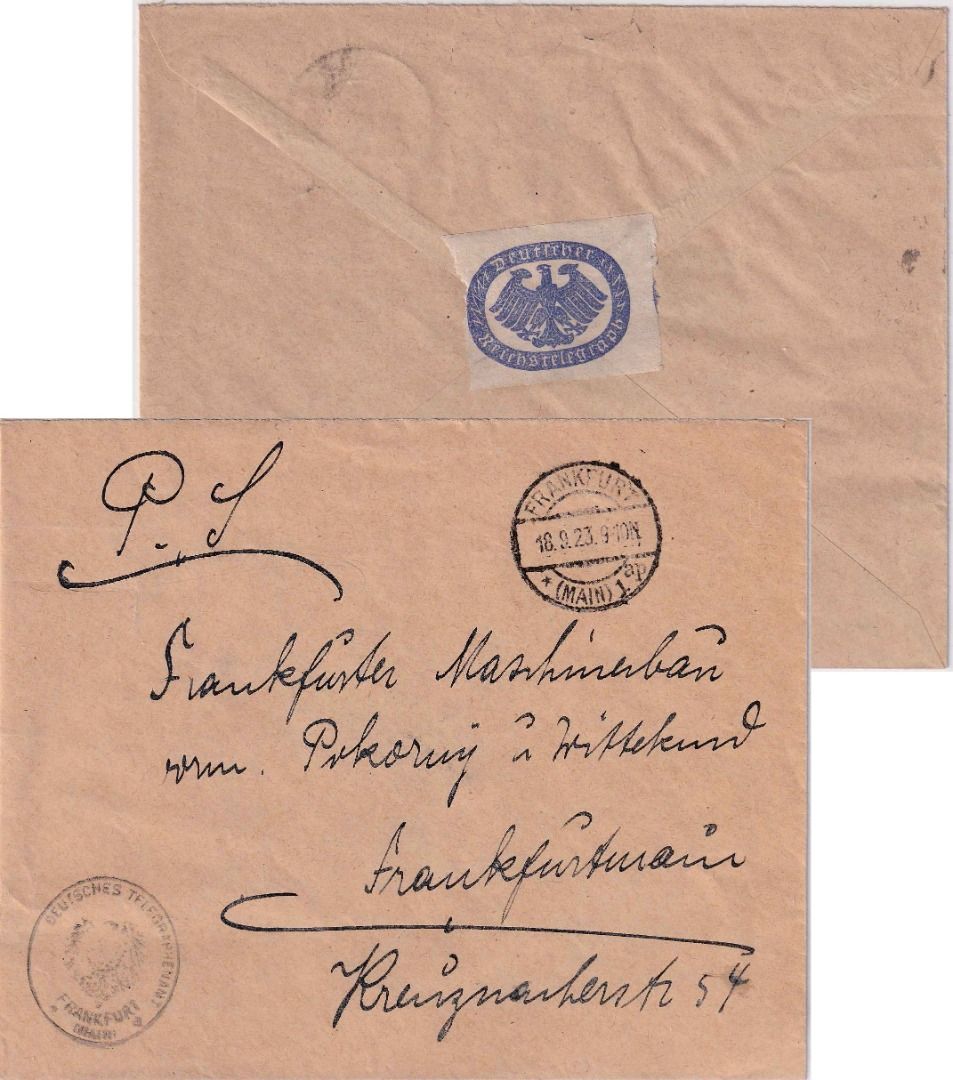 Deutscher
Reichstelegraph
P. S
FRANKFURT
18.9.23.9-10N
* (MAIN) 1 ap
Frankfurter Maschinenbau
vorm. Pokorny u Wittekind
Frankfurtmain
Kreuznacherstr 54
DEUTSCHES TELEGRAPHENAMT
FRANKFURT
(MAIN)